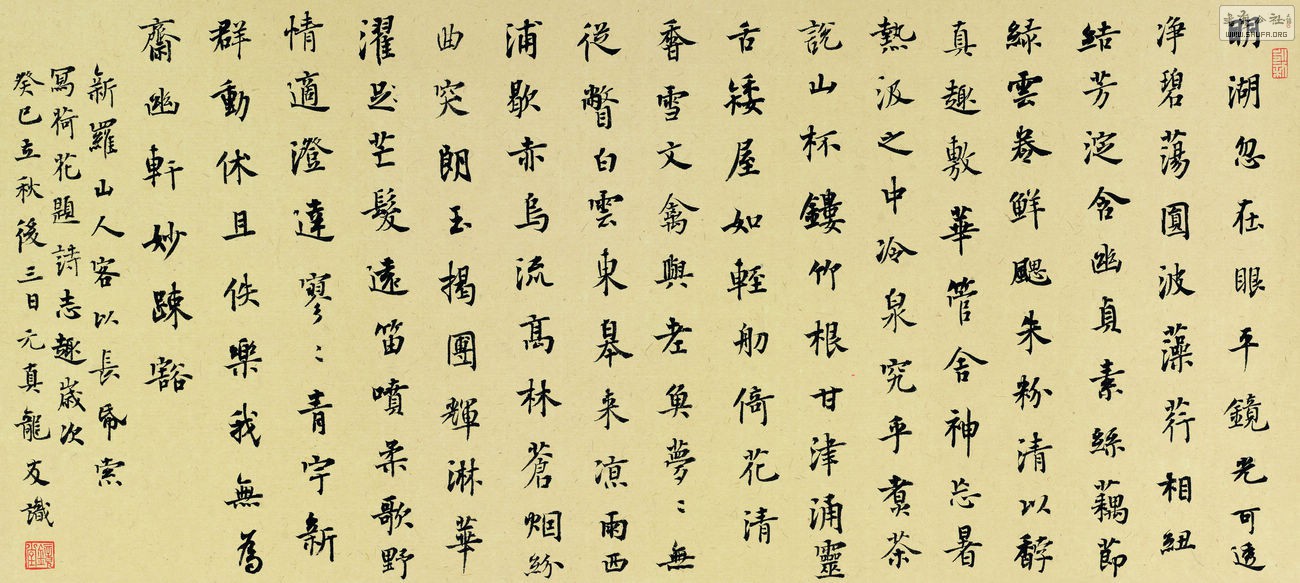 明湖忽在眼平鏡光可透
淨碧蕩圓波藻荇相紐
結芳淀含幽貞素絲藕節
綠雲卷鮮颸朱粉清以馞
真趣敷華管舍神忘暑
熱汲之中泠泉究乎煮茶
說山杯鏤竹根甘津涌靈
舌矮屋如輕舠倚花清
香雪文禽與老魚夢〻無
從瞥白雲東皋來涼雨西
浦歇赤烏流高林蒼烟紛
曲突朗玉揭團輝淋華
濯足芒髮遠笛噴柔歌野
情適澄達寥〻青宇新
群動休且佚樂我無為
齋幽軒妙疎豁
新羅山人客以長帋索
寫荷花題詩志趣歲次
癸巳立秋後三日元真龍友識
書法公社
WWW.SHUFA.ORG